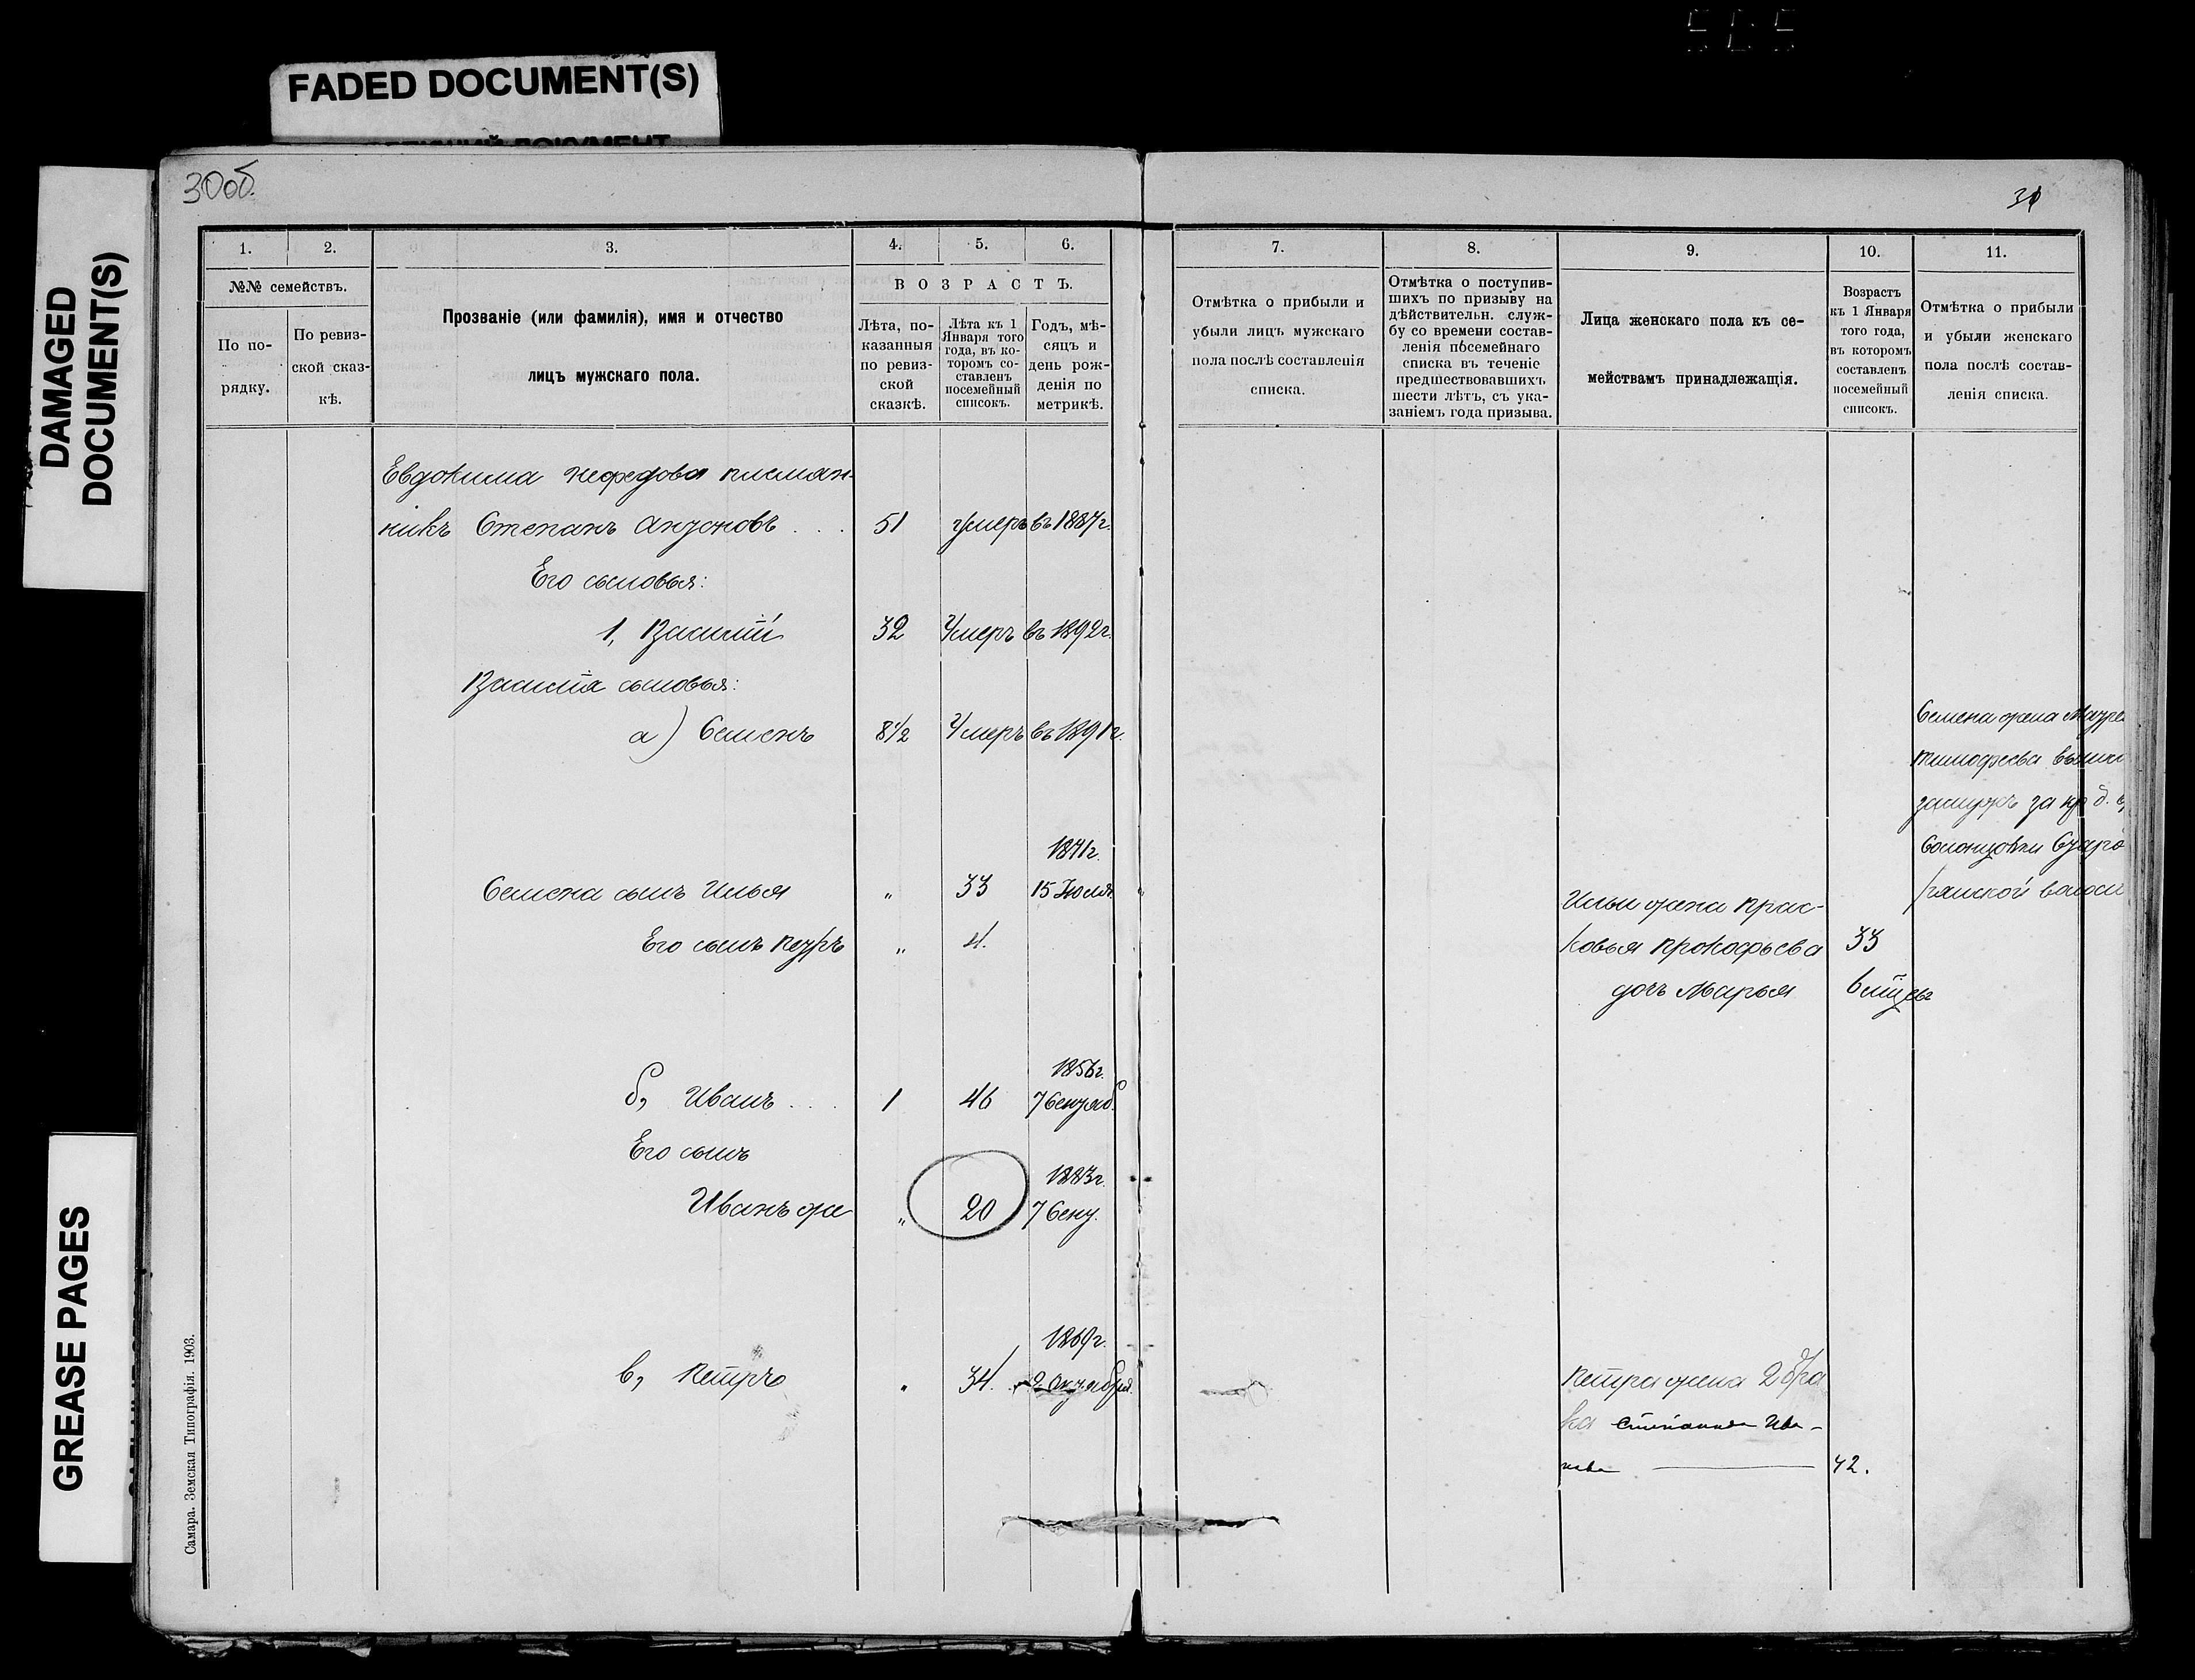 FADED DOCUMENT(S)
DAMAGED
DOCUMENT(S)
GREASE PAGES
30об.
31
1.
2.
3.
4.
5.
6.
№№ семействъ.
По по-
рядку.
По ревиз-
ской сказ-
кѣ.
Прозваніе (или фамилія), имя и отчество
лицъ мужскаго пола.
ВОЗРАСТЪ.
Лѣта, по-
казанныя
по ревиз-
ской
сказкѣ.
Лѣта къ 1
Января того
года, въ ко-
торомъ со-
ставленъ
посемейный
списокъ.
Годъ, мѣ-
сяцъ и
день рож-
денія по
метрикѣ.
7.
8.
9.
10.
11.
Отмѣтка о прибыли и
убыли лицъ мужскаго
пола послѣ составленія
списка.
Отмѣтка о поступив-
шихъ по призыву на
дѣйствительн. служ-
бу со времени состав-
ленія посемейнаго
списка въ теченіе
предшествовавшихъ
шести лѣтъ, съ ука-
заніемъ года призыва.
Лица женскаго пола къ се-
мействамъ принадлежащія.
Возрастъ
къ 1 Января
того года,
въ которомъ
составленъ
посемейный
списокъ.
Отмѣтка о прибыли
и убыли женскаго
пола послѣ состав-
ленія списка.
Евдокима Нефедова племян-
никъ Степанъ Антоновъ . . . 51 Умеръ въ 1887г.
Его сыновья:
1, Василій 32 Умеръ въ 1892г.
Василія сыновья:
а) Семенъ 8½ Умеръ въ 1891г.
Семена жена Мавра
Тимофеева вышла
замужъ за кр. д.
1871г.
Семена сынъ Илья " 33 15 Іюля
Его сынъ Петръ " 4.
Ильи жена Прас-
ковья Прокофьева 33
дочь Марья 6 мѣц
1856г.
б, Иванъ . . . 1 46 7 Сентяб.
Его сынъ
1883г.
Иванъ же " 20 7 Сент.
1869г.
в, Петръ " 34. 2 Октября
Петра жена 2 бра
ка Степанида Ива-
нова 42.
Самара. Земская Типографія. 1903.